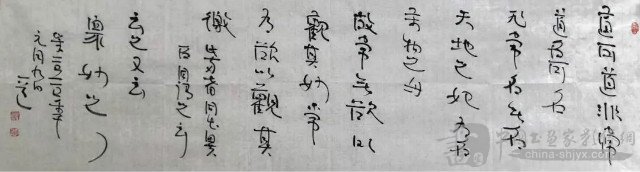 道可道非常
道名可名
非常名无名
天地之始有名
万物之母
故常無欲以
觀其妙常
有欲以觀其
徼此两者同出異
名同谓之玄
玄之又玄
眾妙之门
元月九日
china-shjyx.com